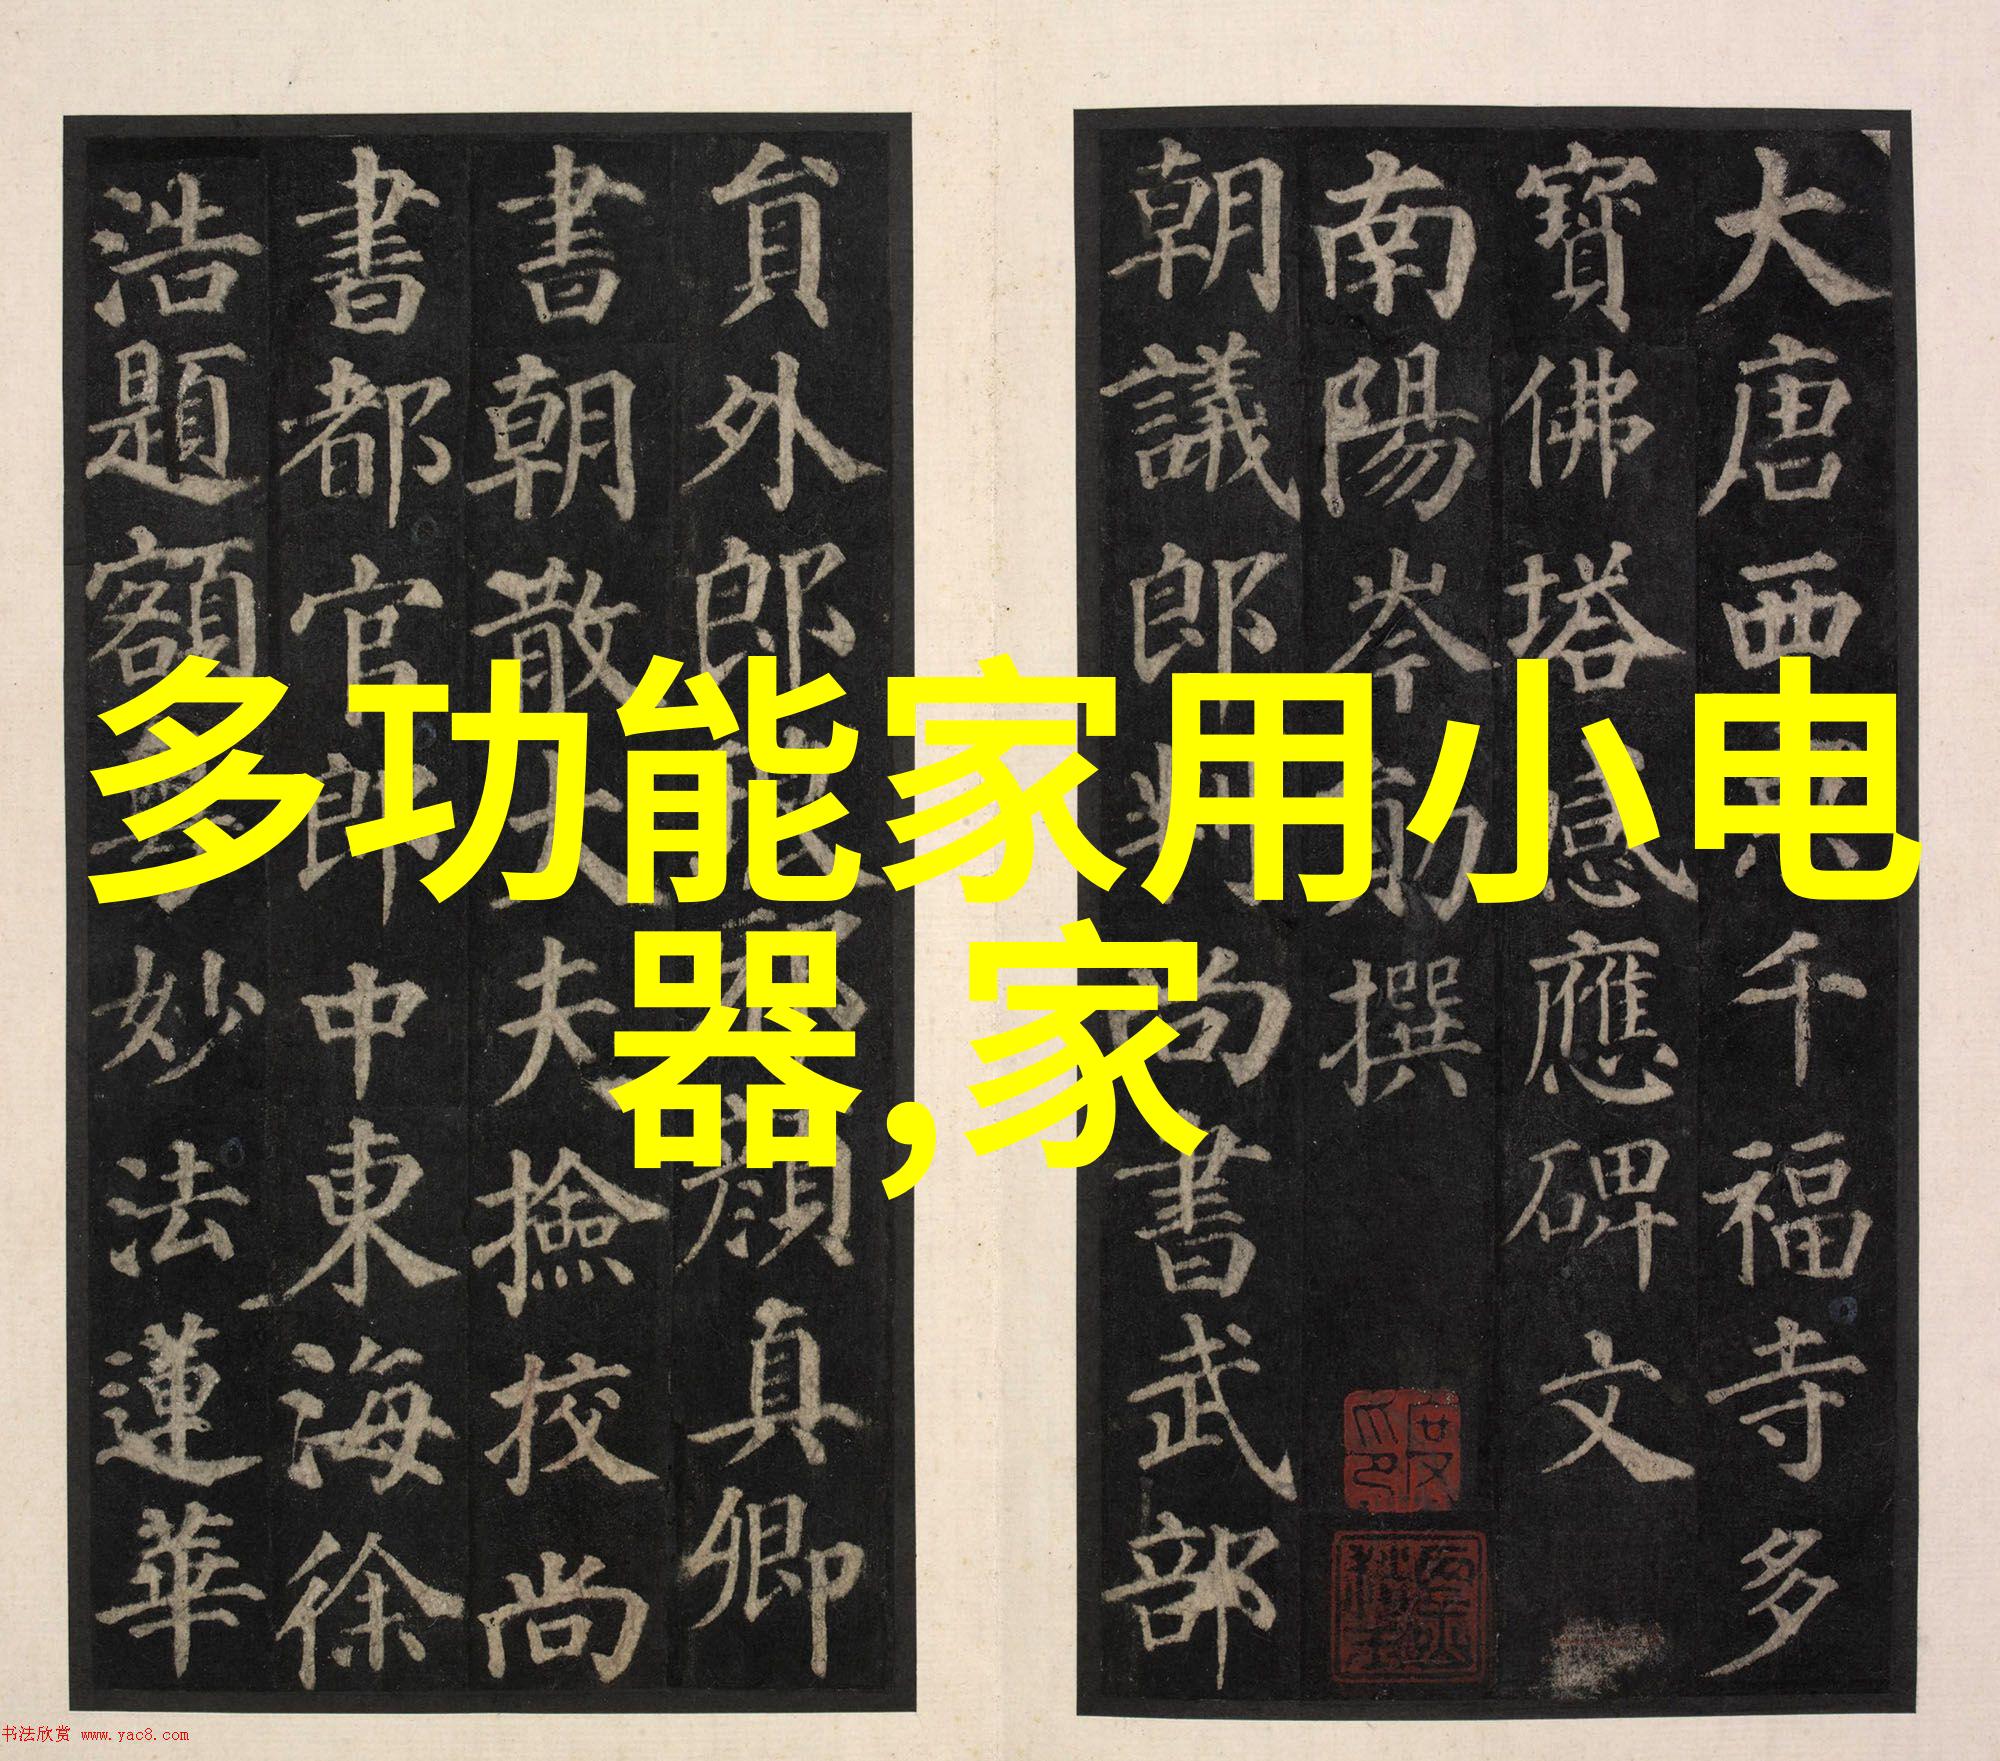 大唐西京千福寺多
寶佛塔感應碑文
南陽岑勛撰
朝議郎判尚書武部
員外郎琅邪顏真卿
書朝散大夫撿校尚
書都官郎中東海徐
浩題額
妙法蓮華
多功能家用小电
器,家
书法欣赏 www.yac8.com